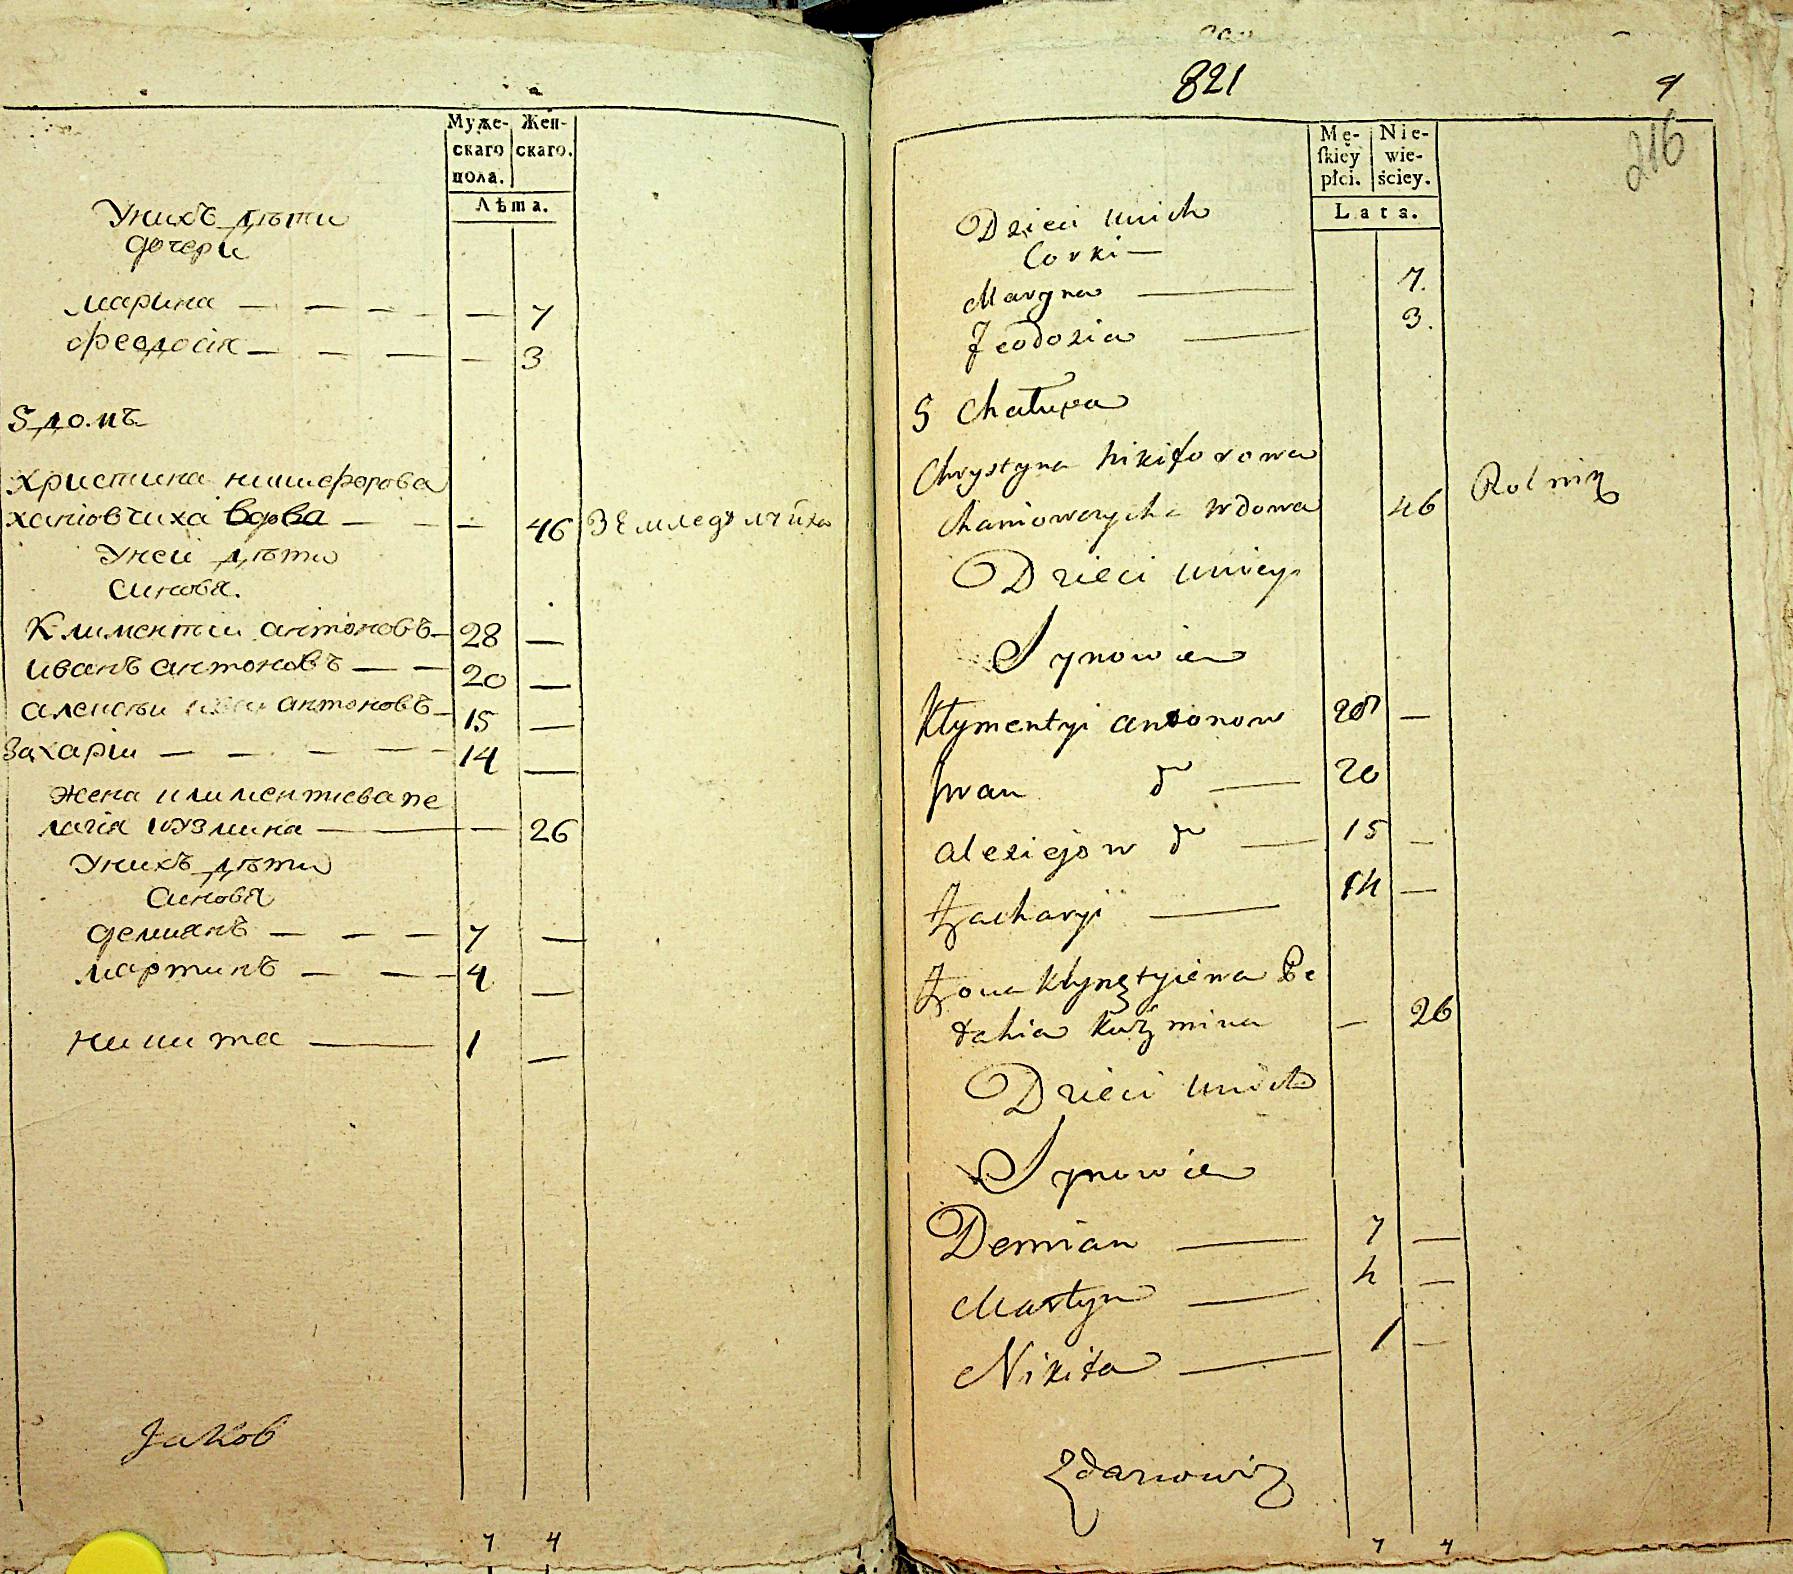 Муже-
скаго
пола.
Жен-
скаго.
Лѣта.
Унихъ дѣти
дочери
марина — — — — — 7
феодосія — — — — 3
5 домъ
христина никифорова
ханювчиха вдова — — — 46 Земледѣлчиха
Уней дѣти
Синовя.
Климентий антоновъ — 28 —
иванъ антоновъ — — 20 —
алексѣи антоновъ — 15 —
Захарiи — — — — — 14 —
жена климентиева пе
лагiя кузмина — — 26
Унихъ дѣти
Синовя
демиянъ — — — 7 —
мартинъ — — — 4 —
никита — 1 —
Jakob
7 4
821
9
216
Mę-
skiey
płci.
Nie-
wie-
ściey.
Lata.
Dzieci unich
Corki —
Maryna — 7.
Feodozia — 3.
5 Chałupa
Chrystyna Nikiforowa
Chaniowczycha wdowa 46 Rolnik
Dzieci uniey
Synowie
Kłymentyi antonow 28 —
Jwan d — 20
alexiejow d — 15 —
Zacharyi — 14 —
Żona Kłymętyiewa Pe
łahia Kuźmina — 26
Dzieci unich
Synowie
Demian — 7 —
Martyn — 4 —
Nikita — 1 —
Zdanowicz
7 4